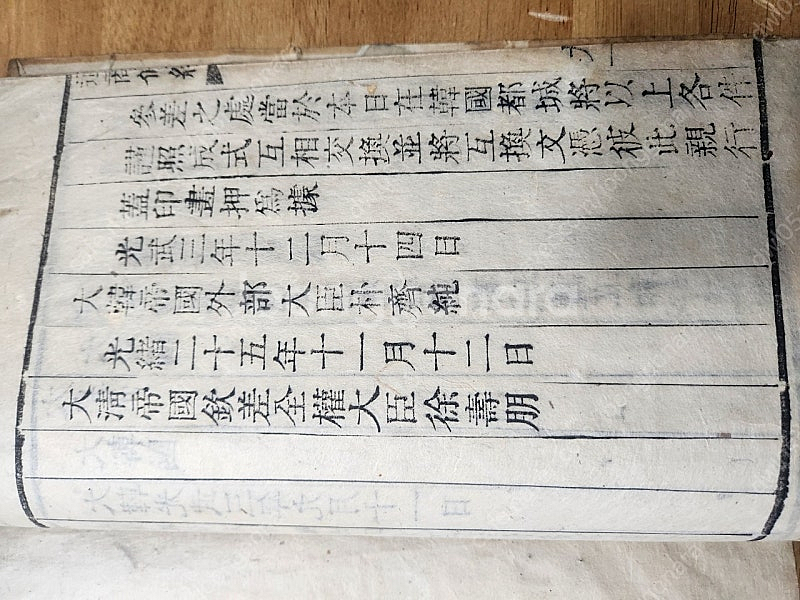 參差之處當於本日在韓國都城將以上各件
謹照成式互相交換並將互換文憑彼此親行
蓋印畫押爲據
光武三年十二月十四日
大韓帝國外部大臣朴齊純
光緖二十五年十一月十二日
大淸帝國欽差全權大臣徐壽朋